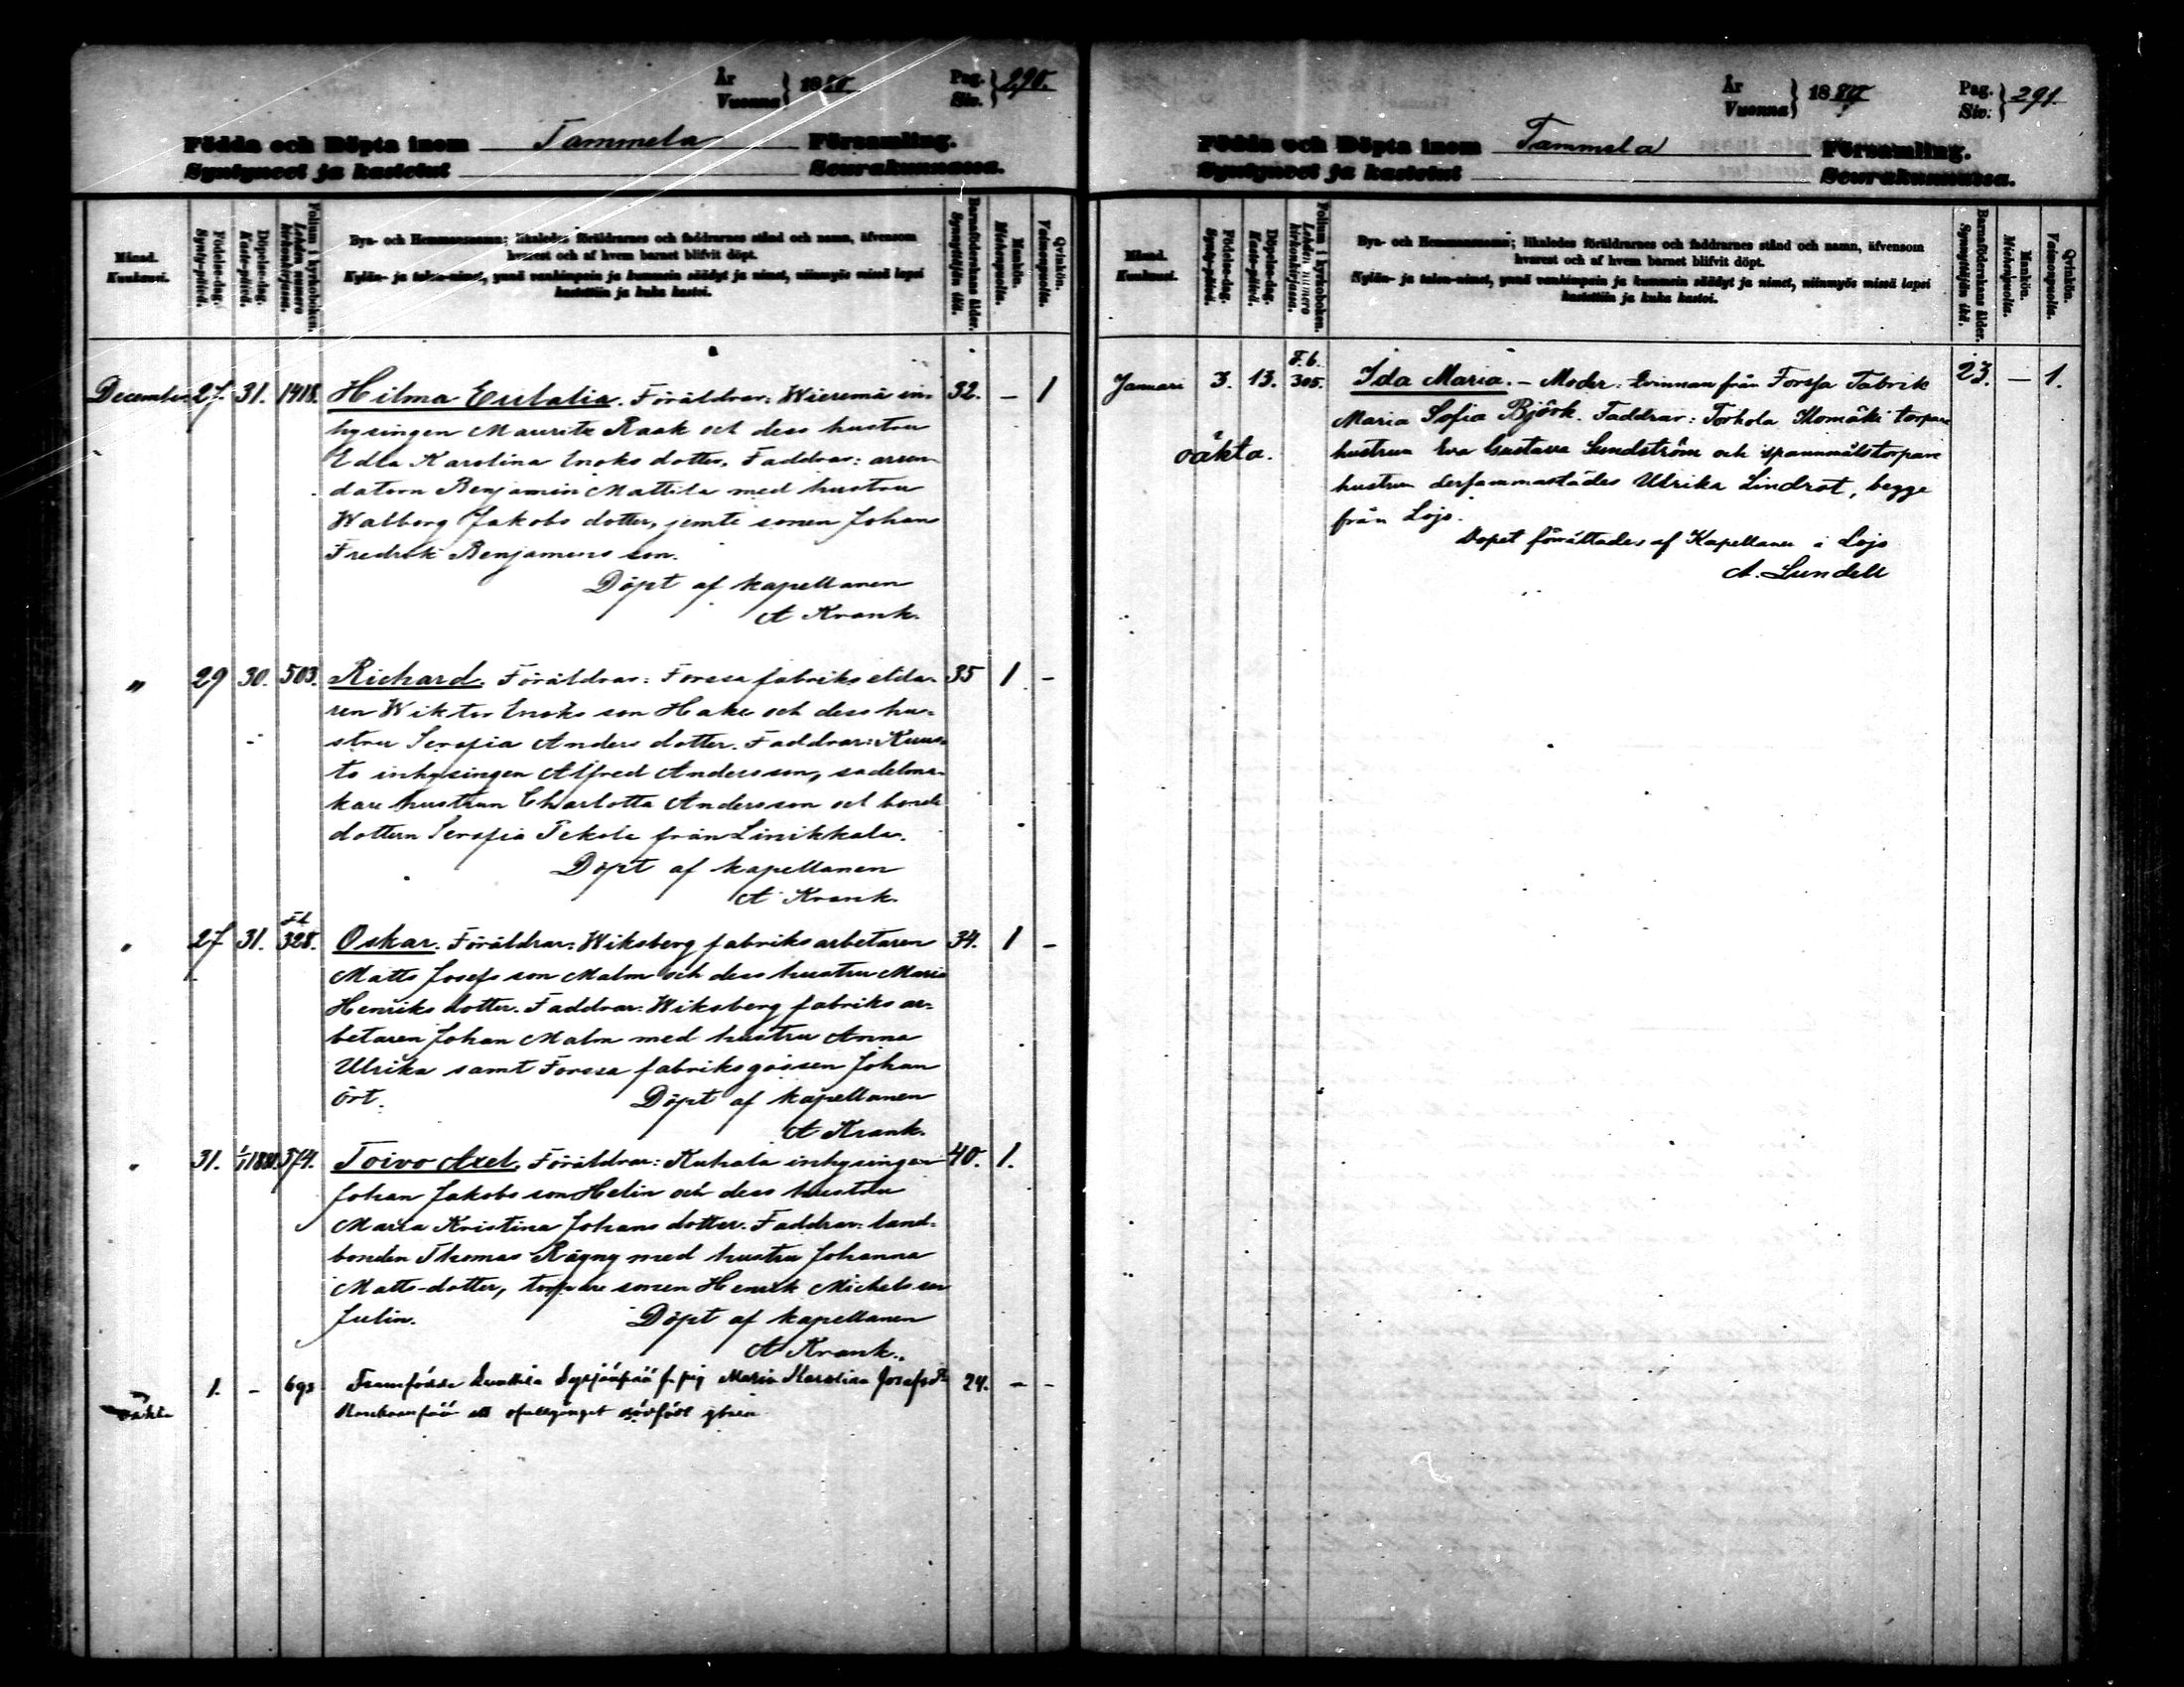 År
Vuonna } 1880
Pag.
Siv. } 290.
Födda och Döpta inom Tammela Församling.
Syntyneet ja kastetut Seurakunnassa.
Månad.
Kuukausi.
Födelse-dag.
Synty-päivä.
Döpelse-dag.
Kaste-päivä.
Folium i kyrkoboken.
Lehden numero kirkonkirjassa.
Bya- och Hemmansnamn; likaledes föräldrarnes och faddrarnes stånd och namn, äfvensom
hvarest och af hvem barnet blifvit döpt.
Kylän- ja talon-nimet, ynnä vanhimpain ja kummein säädyt ja nimet, niinmyös missä lapsi
kastettiin ja kuka kastoi.
Barnaföderskans ålder.
Synnyttäjän ikä.
Mankön.
Miehenpuolta.
Qvinkön.
Vaimonpuolta.
December 27. 31. 1418. Hilma Eulalia. Föräldrar: Wieremä in- 32. – 1
hysingen Maurits Raak och dess hustru
Edla Karolina Enoks dotter. Faddrar: arren-
datorn Benjamin Mattila med hustru
Walborg Jakobs dotter, jemte sonen Johan
Fredrik Benjamins son.
Döpt af kapellanen
A Krank.
" 29 30. 503. Richard. Föräldrar: Forssa fabriks elda- 35 1 –
ren Wiktor Enoks son Hake och dess hu-
stru Serafia Anders dotter. Faddrar: Kuus-
to inhysingen Alfred Andersson, sadelma-
kare hustrun Charlotta Andersson och bonde
dottern Serafia Pekola från Linikkala.
Döpt af kapellanen
A Krank.
" 27 31. F.b. 328. Oskar. Föräldrar: Wiksberg fabriks arbetaren 34. 1 –
Matts Josefs son Malm och dess hustru Maria
Henriks dotter. Faddrar: Wiksberg fabriks ar-
betaren Johan Malm med hustru Anna
Ulrika samt Forssa fabriks gossen Johan
Ört. Döpt af kapellanen
A Krank.
" 31. 1/1 1881. 374. Toivo Axel. Föräldrar: Kuhala inhysingen 40. 1.
Johan Jakobs son Helin och dess hustru
Maria Kristina Johans dotter. Faddrar: land-
bonden Thomas Rägny med hustru Johanna
Matts-dotter, torpare sonen Henrik Michels son
Julin. Döpt af kapellanen
A Krank.
1. – 693 Framfödde pig Maria Karolina Josefsdr 24. – –
oäkta ett ofullgånget dödfödt
År
Vuonna } 188
Pag.
Siv. } 291.
Födda och Döpta inom Tammela Församling.
Syntyneet ja kastetut Seurakunnassa.
Månad.
Kuukausi.
Födelse-dag.
Synty-päivä.
Döpelse-dag.
Kaste-päivä.
Folium i kyrkoboken.
Lehden numero kirkonkirjassa.
Bya- och Hemmansnamn; likaledes föräldrarnes och faddrarnes stånd och namn, äfvensom
hvarest och af hvem barnet blifvit döpt.
Kylän- ja talon-nimet, ynnä vanhimpain ja kummein säädyt ja nimet, niinmyös missä lapsi
kastettiin ja kuka kastoi.
Barnaföderskans ålder.
Synnyttäjän ikä.
Mankön.
Miehenpuolta.
Qvinkön.
Vaimonpuolta.
Januari 3. 13. F.b. 305. Ida Maria. – Moder: Qvinnan från Forssa Fabrik 23. – 1.
Maria Sofia Björk. Faddrar: Torhola Thomäki torpare
oäkta. hustrun Eva Gustava Sundström och spannmålstorpare
hustrun dersammastädes Ulrika Lindrot, begge
från Lojo.
Dopet förrättades af Kapellanen i Lojo
A. Lundell